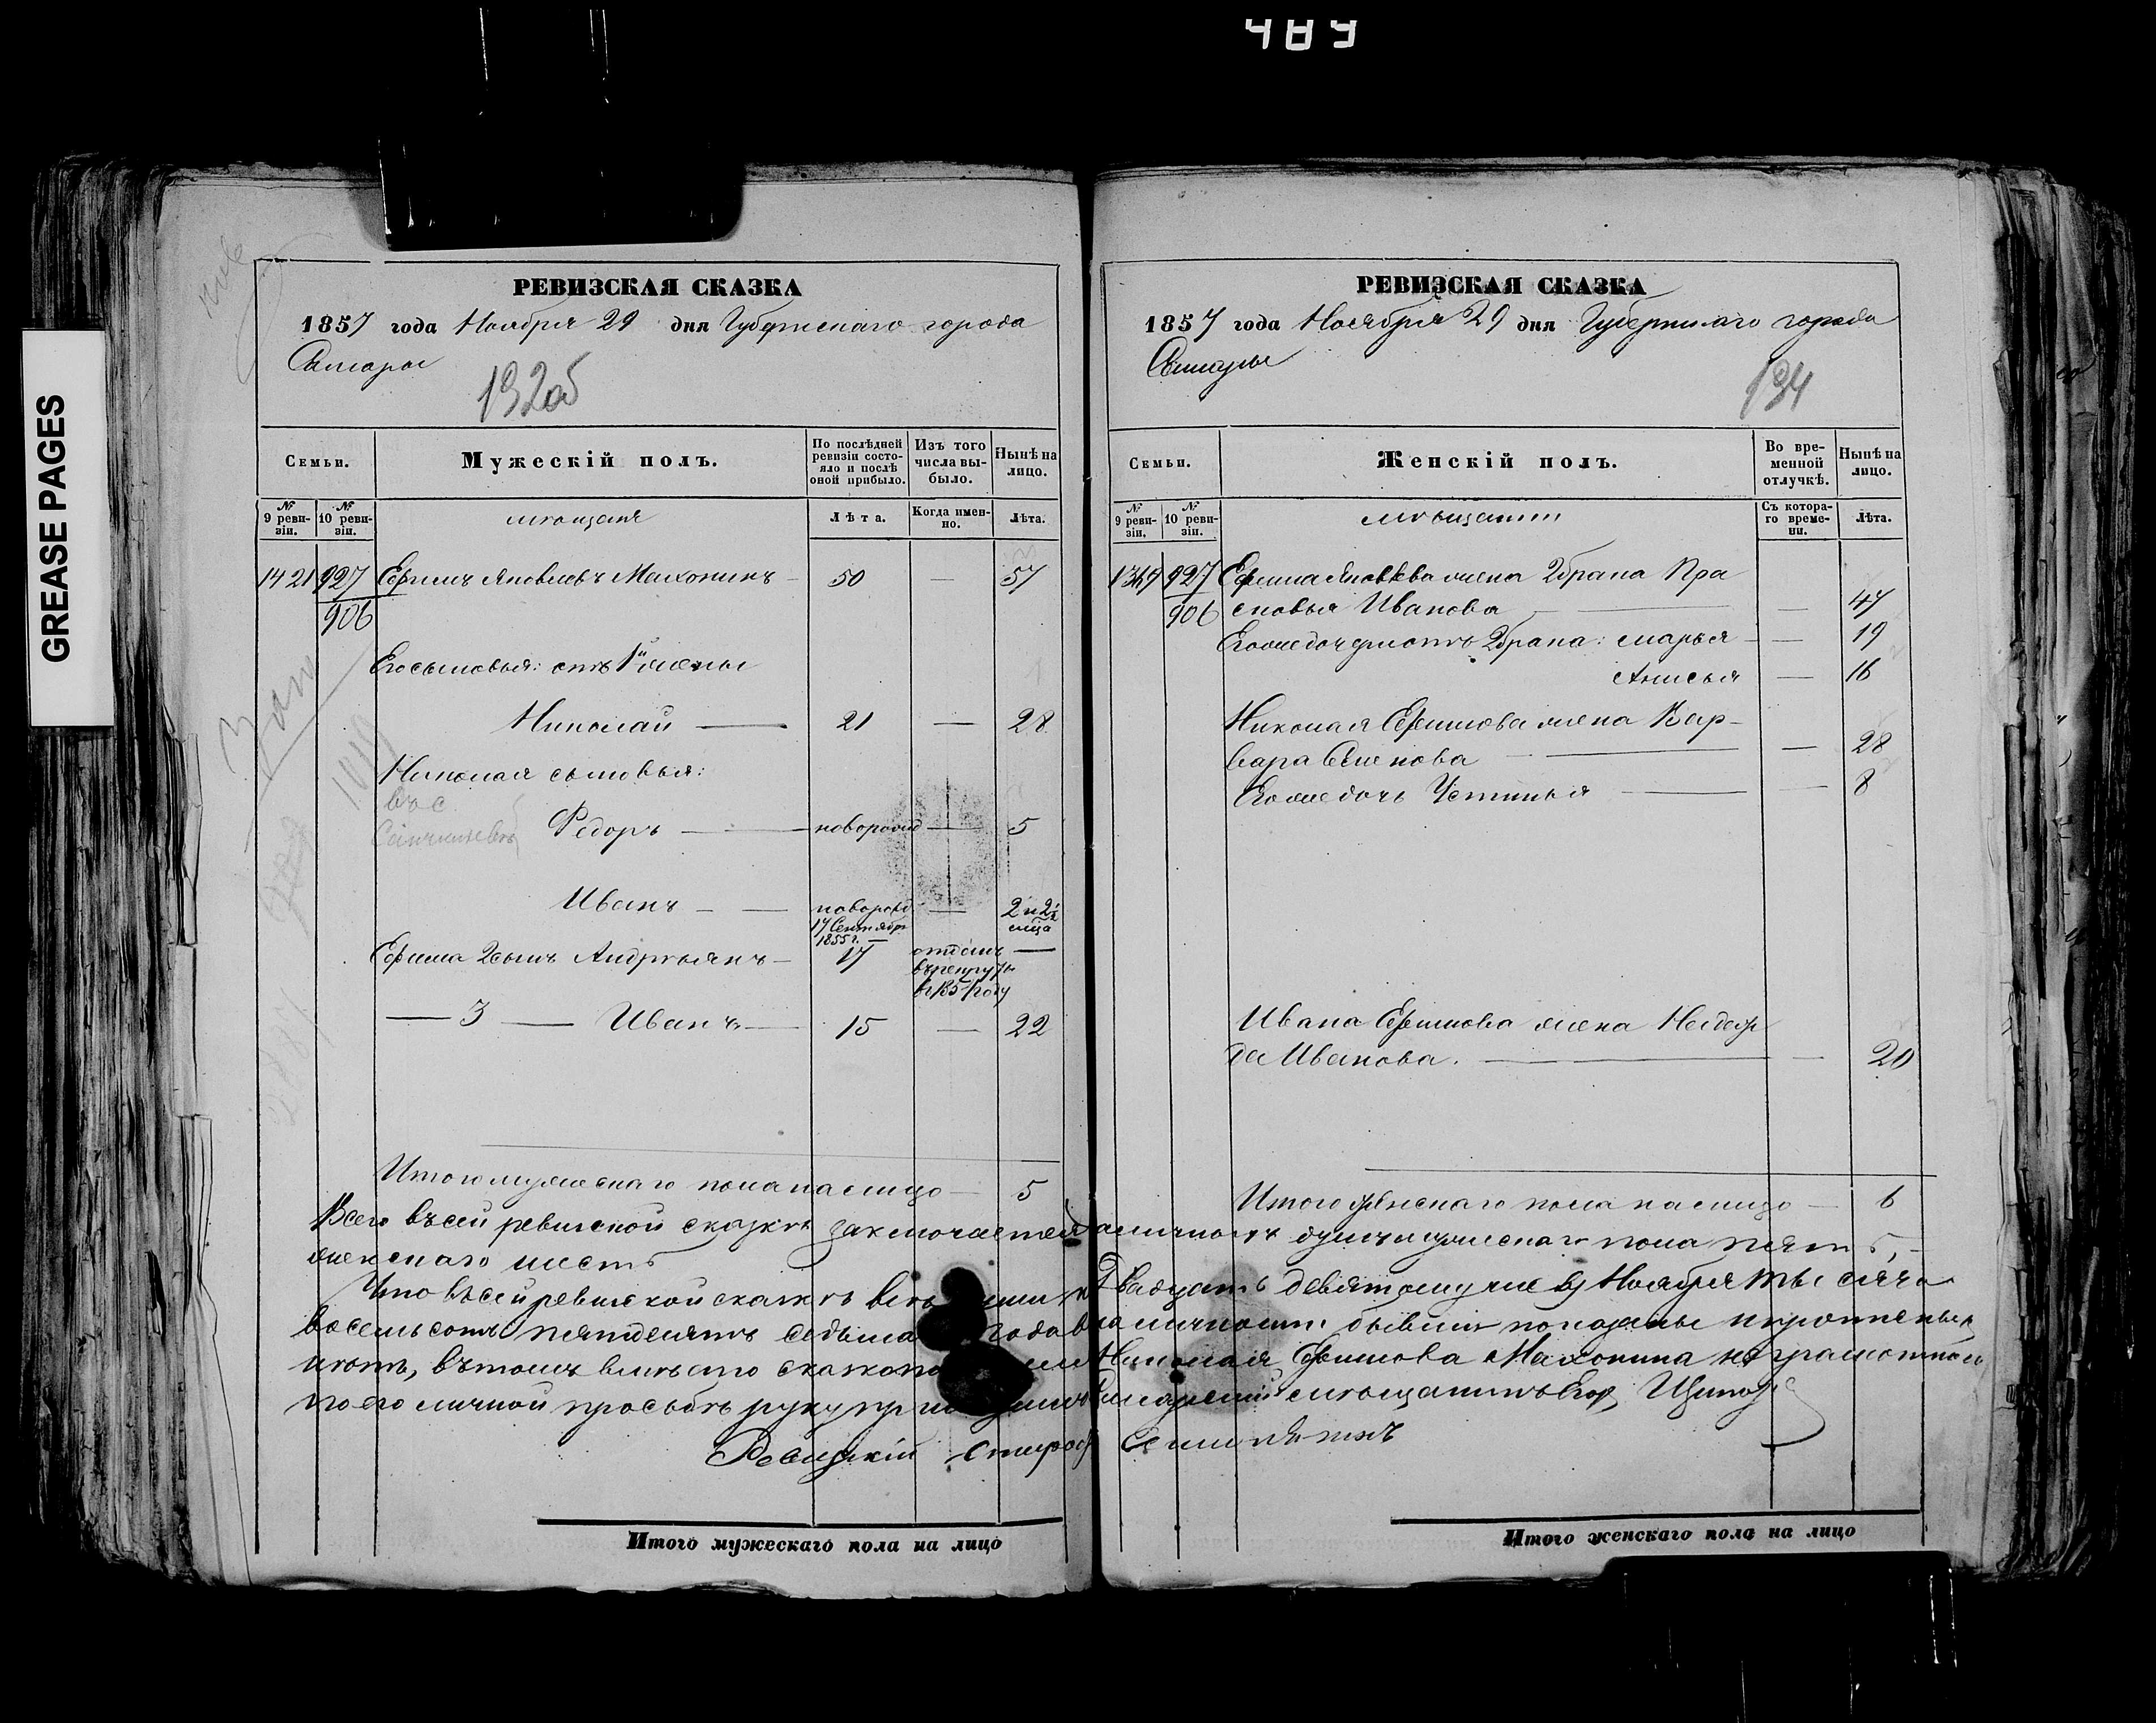 489
GREASE PAGES
РЕВИЗСКАЯ СКАЗКА
1857 года Ноября 29 дня Губернскаго города
Самары
192об
Семьи.
Мужескій полъ.
По послѣдней ревизіи состояло и послѣ оной прибыло.
Изъ того числа выбыло.
Нынѣ на лицо.
№ 9 ревизіи.
№ 10 ревизіи.
мѣщане
Лѣта.
Когда именно.
Лѣта.
1421 927 Ефимъ Яковлевъ Махонинъ — 50 — 57
906
Его сыновья: отъ 1й жены
Николай — 21 — 28
Николая сыновья:
Федоръ — новорожд — 5
Иванъ — — новорожд — 2 и 2
17 Сентября
1855 г. —
Ефима 2 сынъ Андреянъ — 17 отданъ —
въ рекруты
в 185 году
— 3 — Иванъ — 15 — 22
Итого мужескаго пола на лицо — 5
РЕВИЗСКАЯ СКАЗКА
1857 года Ноября 29 дня Губернскаго города
Самары
194
Семьи.
Женскій полъ.
Во временной отлучкѣ.
Нынѣ на лицо.
№ 9 ревизіи.
№ 10 ревизіи.
Съ котораго времени.
Лѣта.
927 Ефима Яковлева жена 2 брака Пра
906 сковья Иванова — — 47
Его же дочери отъ 2 брака: Марья — — 19
Анисья — 16
Николая Ефимова жена Вар-
вара Семенова — — 28
Его же дочь Устинья — — 8
Ивана Ефимова жена Надеж
да Иванова. — — 20
Итого женскаго пола на лицо — 6
Всего въ сей ревиской сказкѣ заключается наличныхъ душъ мужескаго пола пять,
женскаго шесть
Что въ сей ревиской сказкѣ Двадцать девятому числу Ноября тысяча
восемьсотъ пятдесятъ седьма года наличности бывшіе показаны и прописныхъ
нѣтъ, въ томъ вмѣсто Николая Ефимова Махонина неграмотнаго
по его личной прозьбѣ руку мѣщанинъ Егоръ
Ревизкій
Итого мужескаго пола на лицо
Итого женскаго пола на лицо